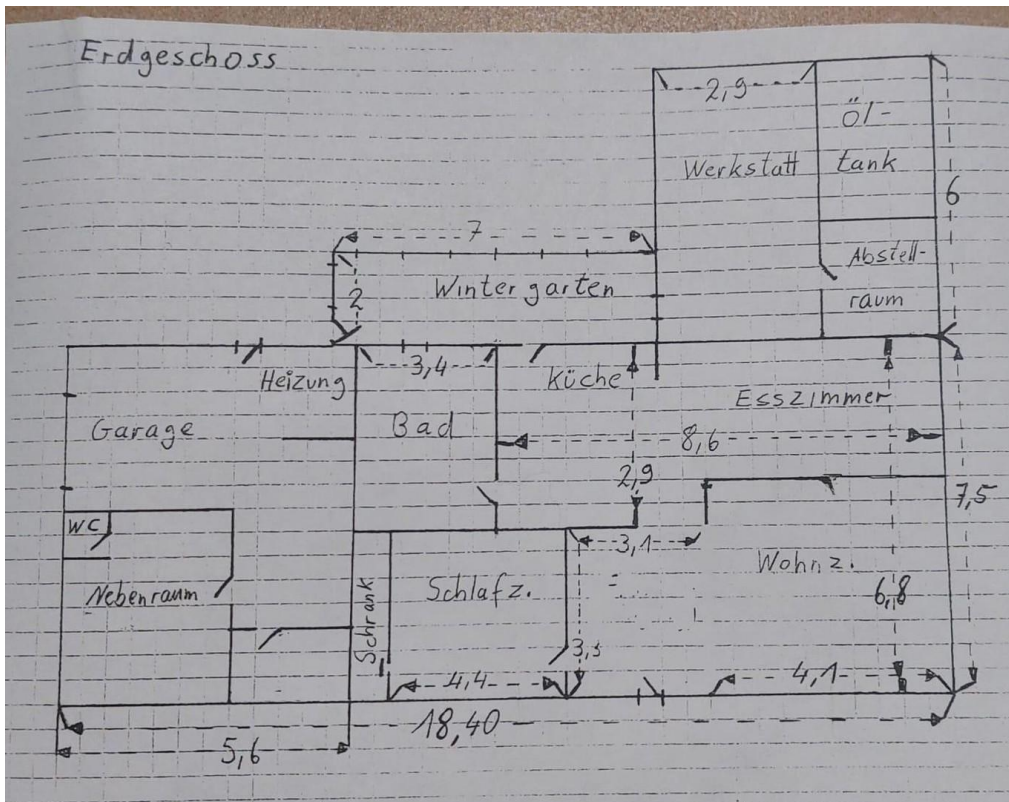 Erdgeschoss
2,9
Öl-
tank
Werkstatt
6
7
Abstell-
raum
Wintergarten
2
3,4
Heizung
Küche
Esszimmer
Garage
Bad
8,6
2,9
7,5
WC
3,1
Wohnz.
Nebenraum
Schrank
Schlafz.
6,8
4,4
4,1
18,40
5,6